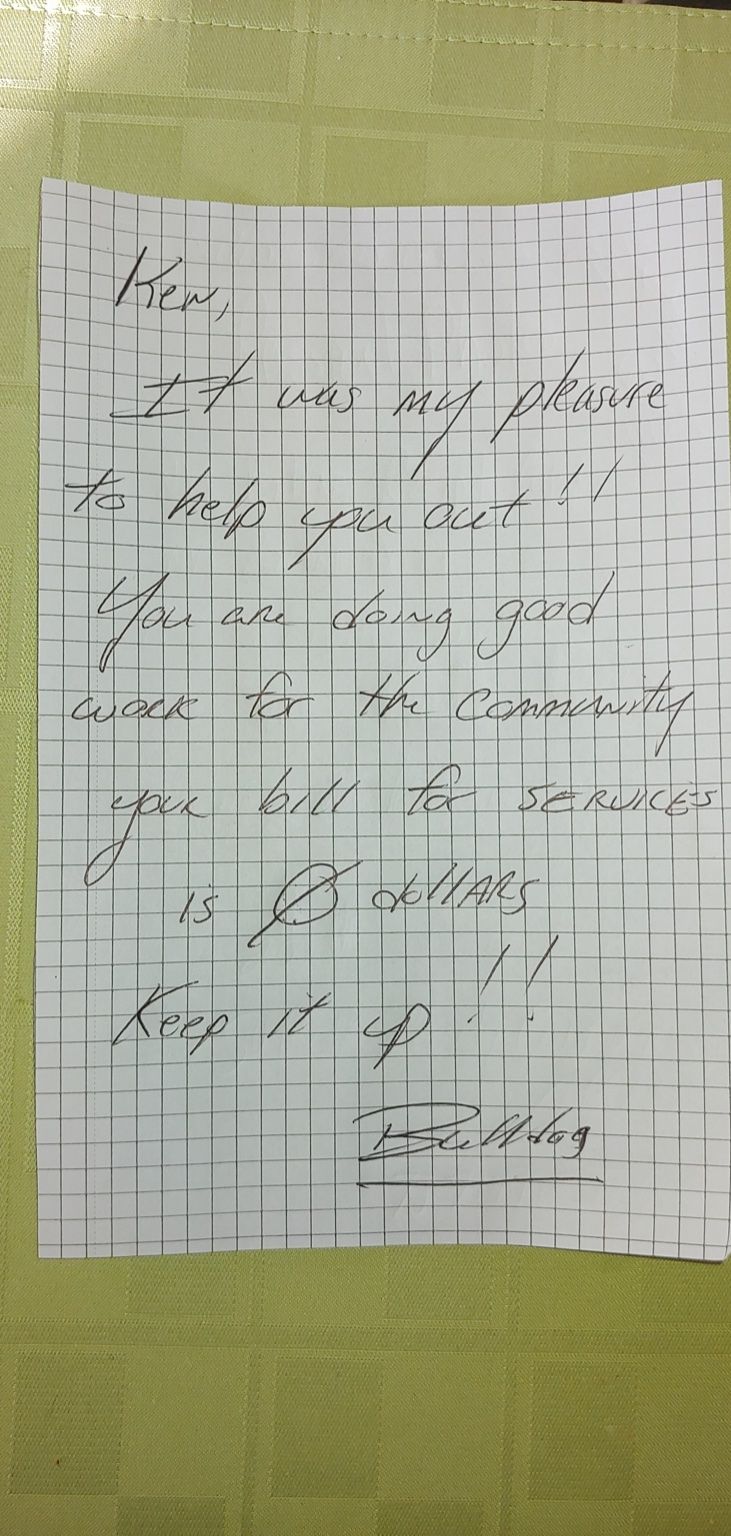 Ken,
It was my pleasure
to help you out!!
You are doing good
work for the community
your bill for SERVICES
is Ø dollARS
Keep it up!!
Bulldog